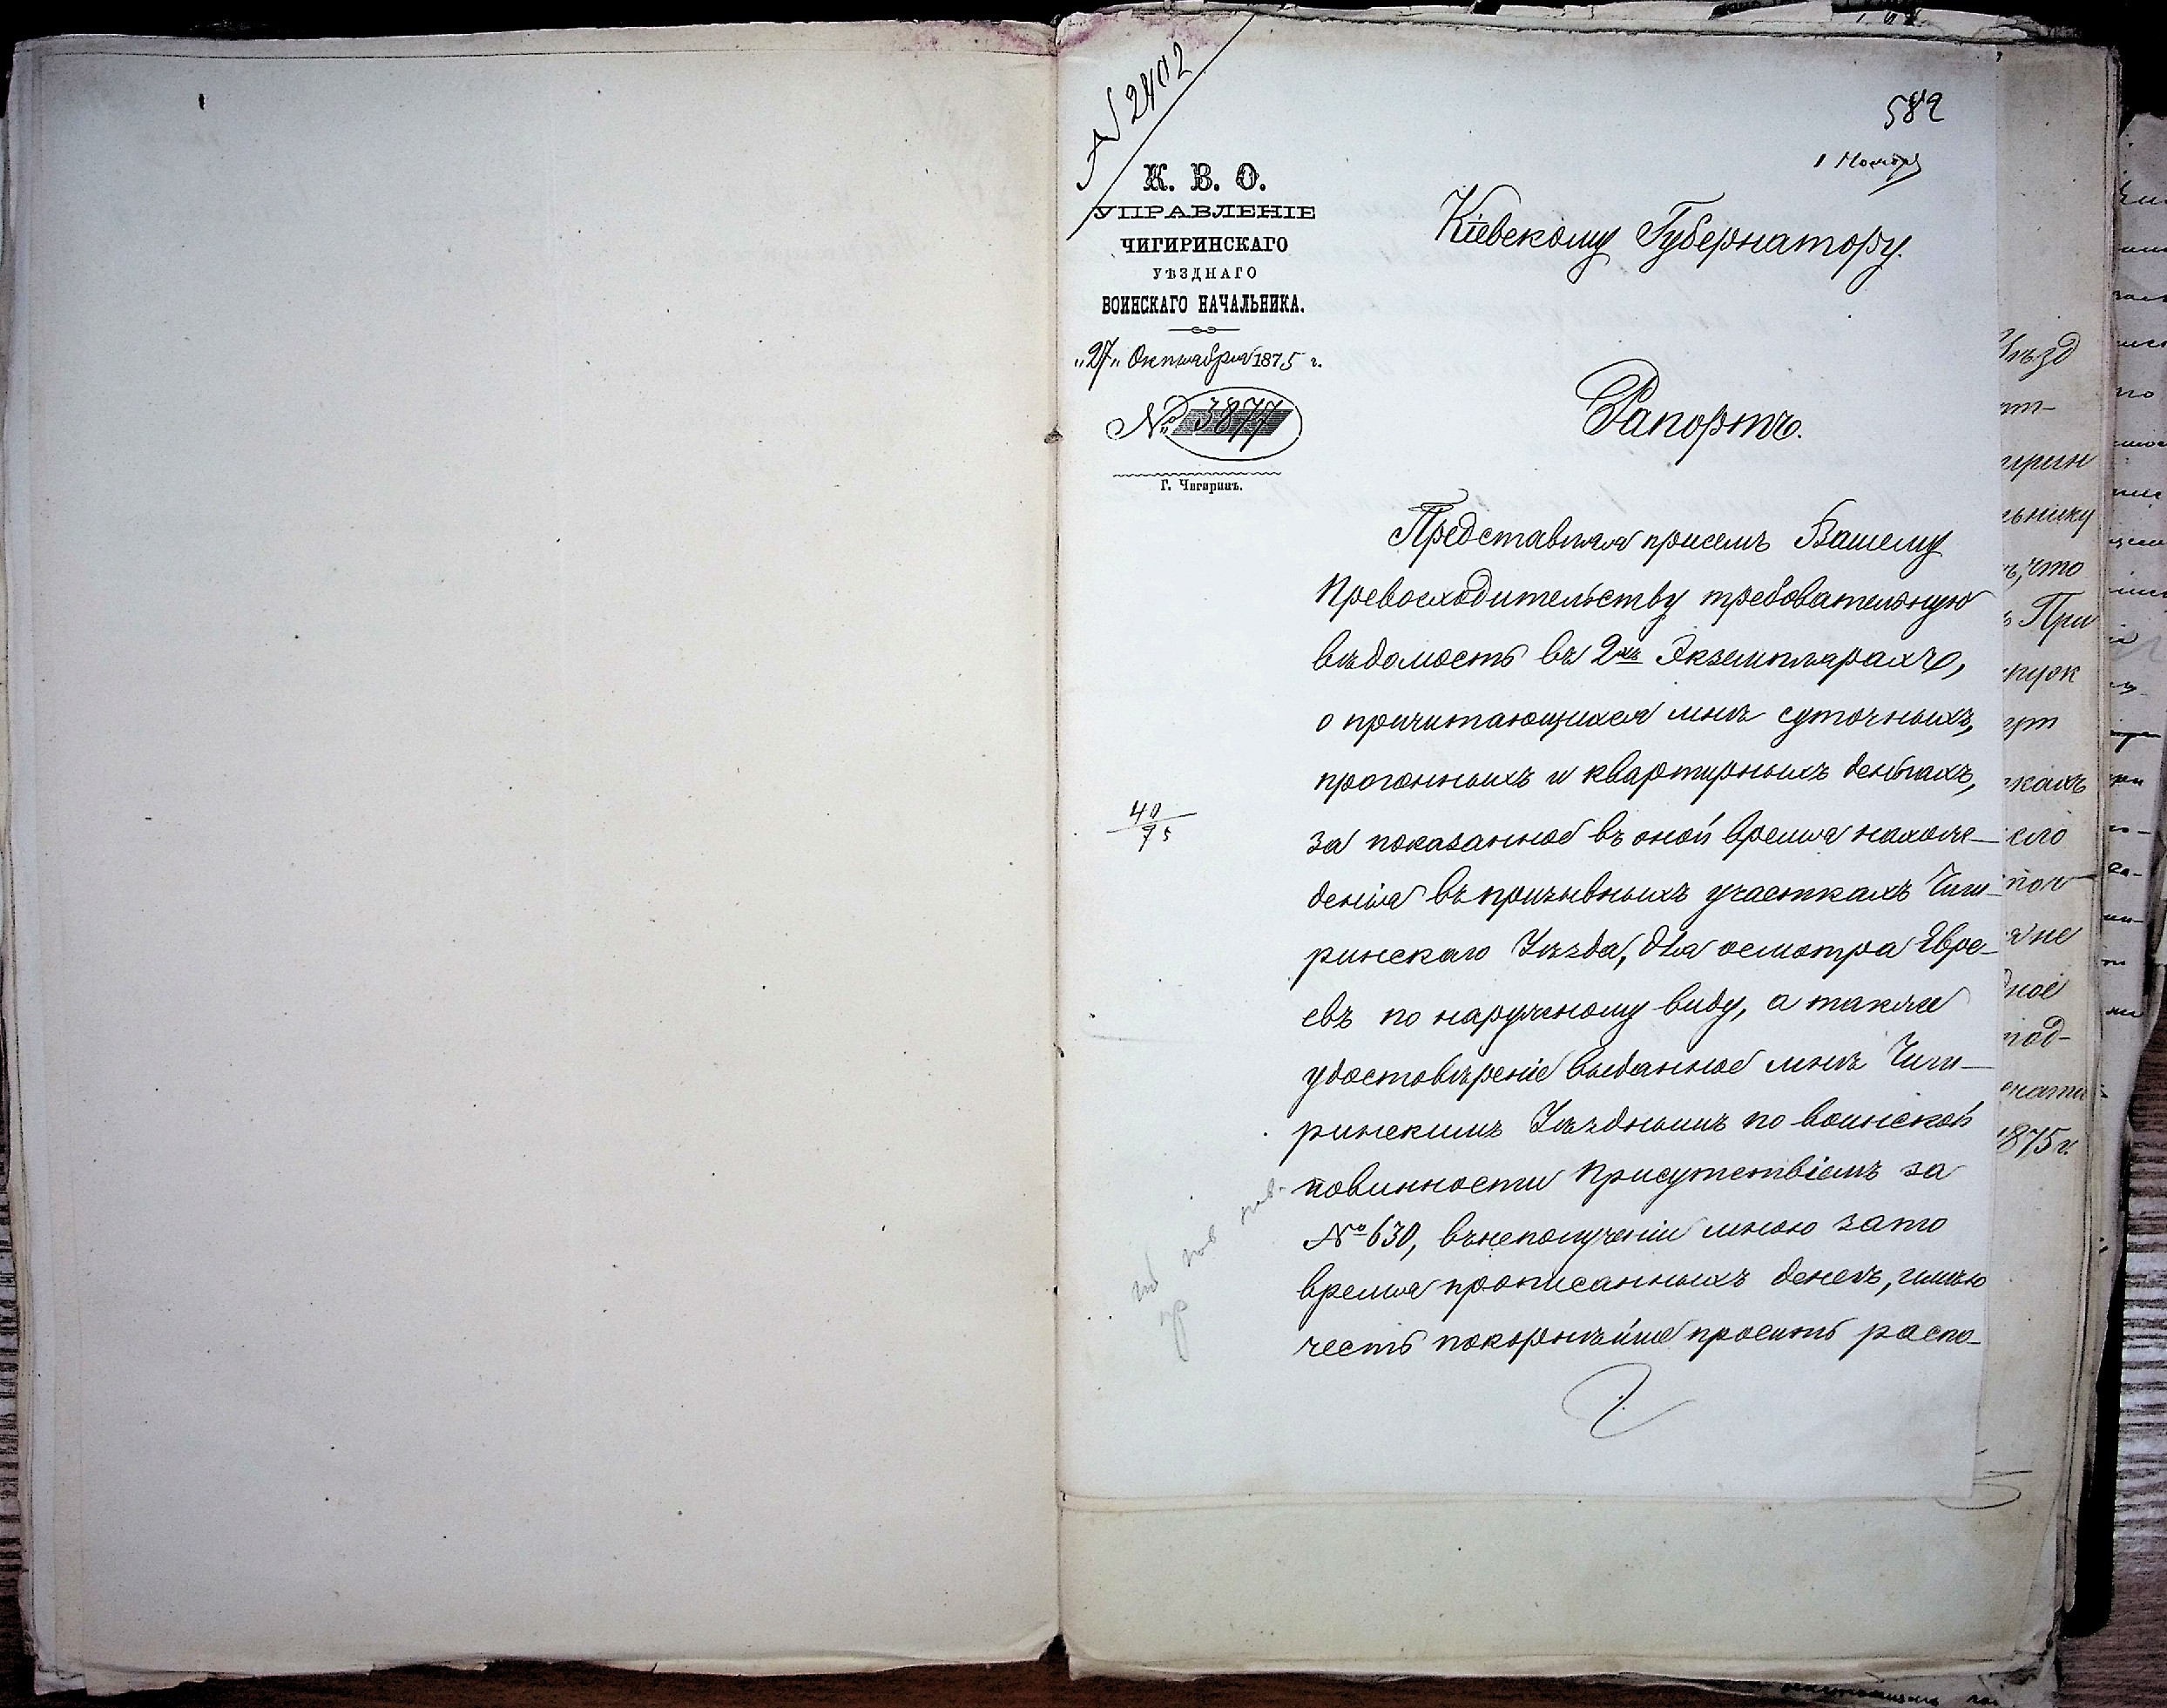 № 2402
582
1 Ноября
К. В. О.
УПРАВЛЕНІЕ
ЧИГИРИНСКАГО
УѢЗДНАГО
ВОИНСКАГО НАЧАЛЬНИКА.
„27„ Октября 1875 г.
№ 3877
Г. Чигиринъ.
Кіевскому Губернатору.
Рапортъ.
Представляя присемъ Вашему
Превосходительству требовательную
вѣдомость въ 2хъ Экземплярахъ,
о причитающихся мнѣ суточныхъ,
прогонныхъ и квартирныхъ деньгахъ,
за показанное въ оной время нахож-
денія въ призывныхъ участкахъ Чиги-
ринскаго Уѣзда, для осмотра Евре-
евъ по наружному виду, а также
удостовѣреніе выданное мнѣ Чиги-
ринскимъ Уѣзднымъ по воинской
повинности Присутствіемъ за
№ 630, въ неполученіи мною за то
время прописанныхъ денегъ, имѣю
честь покорнѣйше просить распо-
40
75
Уѣзд
ирин
ьнику
ъ, что
При
пуск
кахъ
его
не
ное
под-
1875 г.